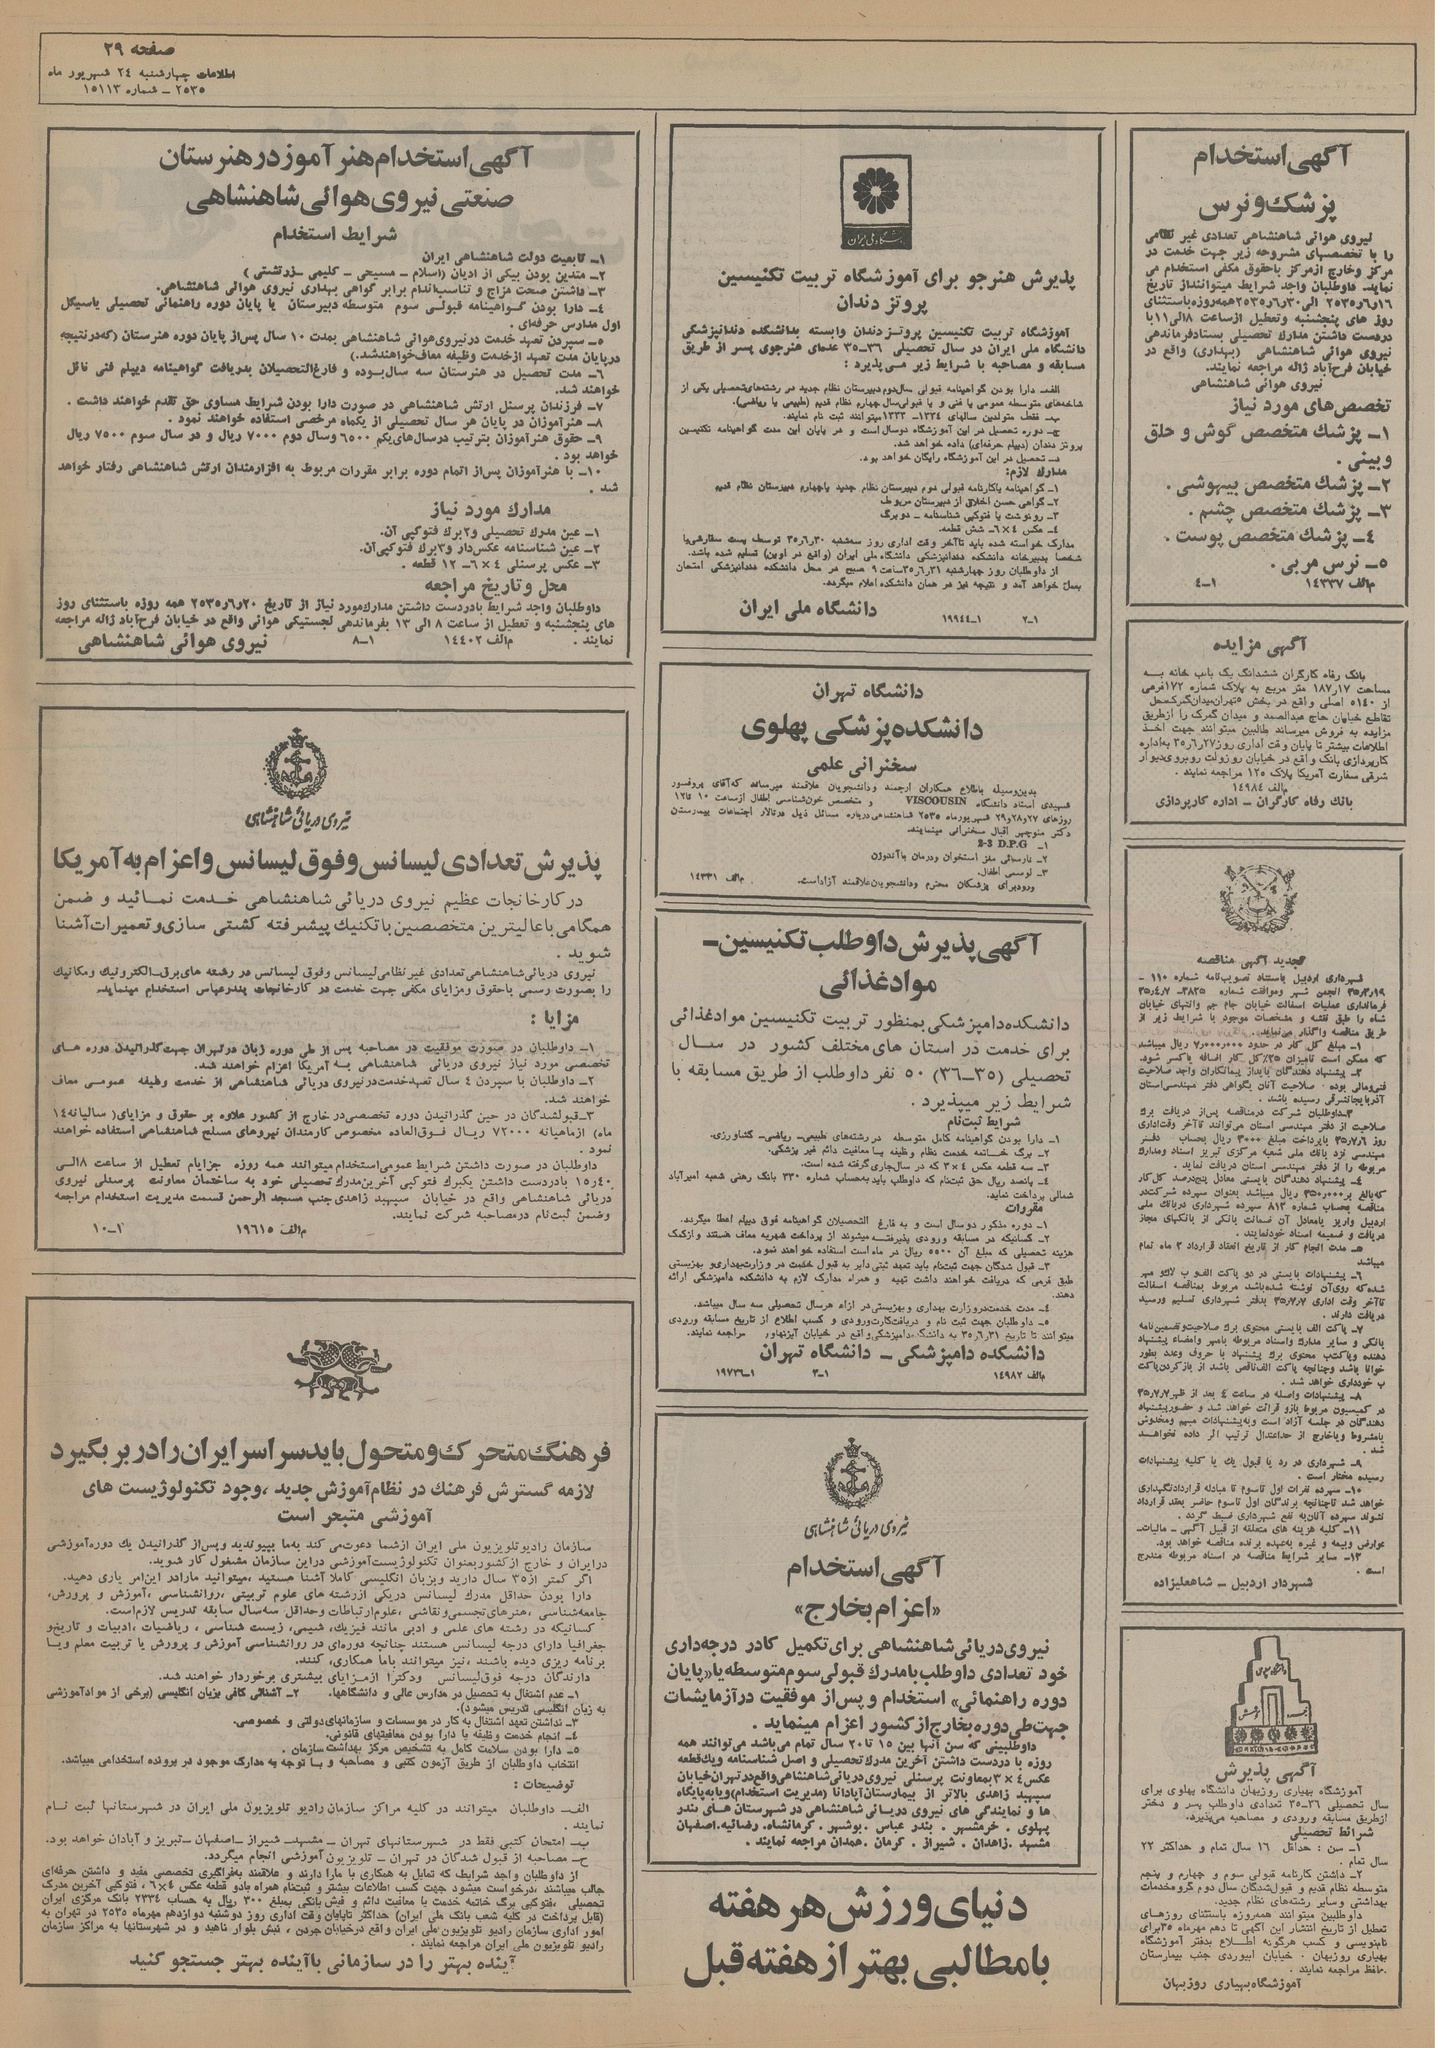 صفحه ۲۹
اطلاعات چهارشنبه ۲۴ شهریور ماه
۲۵۳۵ ـ شماره ۱۵۱۱۳
آگهی استخدام
پزشك و نرس
نیروی هوائی شاهنشاهی تعدادی غیر نظامی
را با تخصصهای مشروحه زیر جهت خدمت در
مرکز وخارج ازمرکز باحقوق مکفی استخدام می
نماید. داوطلبان واجد شرایط میتوانند از تاریخ
۲۵۳۵٫۶٫۱۶ الی ۲۵۳۵٫۶٫۳۰ همه روزه باستثنای
روز های پنجشنبه وتعطیل ازساعت ۸ الی ۱۱ با
دردست داشتن مدارك تحصیلی بستادفرماندهی
نیروی هوائی شاهنشاهی (بهداری) واقع در
خیابان فرح‌آباد ژاله مراجعه نمایند.
نیروی هوائی شاهنشاهی
تخصص‌های مورد نیاز
۱ـ پزشك متخصص گوش و حلق
و بینی .
۲ـ پزشك متخصص بیهوشی .
۳ـ پزشك متخصص چشم .
۴ـ پزشك متخصص پوست .
۵ـ نرس مربی .
م‌الف ۱۴۳۳۷ ۱ـ۴
آگهی مزایده
بانك رفاه کارگران ششدانگ یك باب خانه به
مساحت ۱۸۷٫۱۷ متر مربع به پلاك شماره ۱۷۲ فرعی
از ۵۱۴۰ اصلی واقع در بخش ۵تهران‌میدان‌گمرك‌محل
تقاطع خیابان حاج عبدالصمد و میدان گمرك را ازطریق
مزایده به فروش میرساند طالبین میتوانند جهت اخذ
اطلاعات بیشتر تا پایان وقت اداری روز ۳۵٫۶٫۲۷ به‌اداره
کارپردازی بانك واقع در خیابان روزولت روبروی‌دیوار
شرقی سفارت آمریکا پلاك ۱۲۵ مراجعه نمایند .
م‌الف ۱۴۹۸۴
بانك رفاه کارگران ـ اداره کارپردازی
تجدید آگهی مناقصه
شهرداری اردبیل باستناد تصویب‌نامه شماره ۱۱۰ ـ
۳۵٫۳٫۱۹ انجمن شهر وموافقت شماره ۳۸۳۵ـ ۳۵٫۴٫۷
فرمانداری عملیات اسفالت خیابان جام جم وانتهای خیابان
شاه را طبق نقشه و مشخصات موجود با شرایط زیر از
طریق مناقصه واگذار می‌نماید.
۱ـ مبلغ کل کار در حدود ۷٫۰۰۰٫۰۰۰ ریال میباشد
که ممکن است تامیزان ۲۵٪ کل کار اضافه یاکسر شود.
۲ـ پیشنهاد دهندگان بایداز پیمانکاران واجد صلاحیت
فنی‌ومالی بوده صلاحیت آنان بگواهی دفتر مهندسی‌استان
آذربایجانشرقی رسیده باشد .
۳ـداوطلبان شرکت درمناقصه پس‌از دریافت برك
صلاحیت از دفتر مهندسی استان می‌توانند تاآخر وقت‌اداری
روز ۳۵٫۷٫۶ باپرداخت مبلغ ۳۰۰۰ ریال بحساب دفتر
مهندسی نزد بانك ملی شعبه مرکزی تبریز اسناد ومدارك
مربوطه را از دفتر مهندسی استان دریافت نماید .
۴ـ پیشنهاد دهندگان بایستی معادل پنج‌درصد کل‌کار
که‌بالغ بر۳۵۰٫۰۰۰ ریال میباشد بعنوان سپرده شرکت‌در
مناقصه بحساب شماره ۸۱۳ سپرده شهرداری دربانك ملی
اردبیل واریز یامعادل آن ضمانت بانکی از بانکهای مجاز
دریافت و ضمیمه اسناد خودنمایند .
۵ـ مدت انجام کار از تاریخ انعقاد قرارداد ۲ ماه تمام
میباشد
۶ـ پیشنهادات بایستی در دو پاکت الف‌و ب لاك‌و مهر
شده‌که روی‌آن نوشته شده‌باشد مربوط بمناقصه اسفالت
تاآخر وقت اداری ۳۵٫۷٫۷ بدفتر شهرداری تسلیم ورسید
دریافت دارند .
۷ـ پاکت الف بایستی محتوی برك صلاحیت‌وتضمین‌نامه
بانکی و سایر مدارك واسناد مربوطه بامهر وامضاء پیشنهاد
دهنده وپاکت‌ب محتوی برك پیشنهاد با حروف وعدد بطور
خوانا باشد وچنانچه پاکت الف‌ناقص باشد از بازکردن‌پاکت
ب خودداری خواهد شد .
۸ـ پیشنهادات واصله در ساعت ۴ بعد از ظهر۳۵٫۷٫۷
در کمیسیون مربوط بازو قرائت خواهد شد و حضورپیشنهاد
دهندگان در جلسه آزاد است وبه‌پیشنهادات مبهم ومخدوش
یامشروط ویاخارج از حداعتدال ترتیب اثر داده نخواهد
شد .
۹ـ شهرداری در رد یا قبول یك یا کلیه پیشنهادات
رسیده مختار است .
۱۰ـ سپرده نفرات اول تاسوم تا مبادله قراردادنگهداری
خواهد شد تاچنانچه برندگان اول تاسوم حاضر بعقد قرارداد
نشوند سپرده آنان‌به نفع شهرداری ضبط گردد .
۱۱ـ کلیه هزینه های متعلقه از قبیل آگهی ـ مالیات‌ـ
عوارض وبیمه و غیره به‌عهده برنده مناقصه خواهد بود.
۱۲ـ سایر شرایط مناقصه در اسناد مربوطه مندرج
است .
شهردار اردبیل ـ شاهعلیزاده
آگهی پذیرش
آموزشگاه بهیاری روزبهان دانشگاه پهلوی برای
سال تحصیلی ۳۶ـ۳۵ تعدادی داوطلب پسر و دختر
ازطریق مسابقه ورودی و مصاحبه می‌پذیرد.
شرائط تحصیلی
۱ـ سن : حداقل ۱۶ سال تمام و حداکثر ۲۲
سال تمام .
۲ـ داشتن کارنامه قبولی سوم و چهارم و پنجم
متوسطه نظام قدیم و قبول‌شدگان سال دوم گروه‌خدمات
بهداشتی وسایر رشته‌های نظام جدید .
داوطلبین میتوانند همه‌روزه باستثنای روزهای
تعطیل از تاریخ انتشار این آگهی تا دهم مهرماه ۳۵برای
نامنویسی و کسب هرگونه اطلاع بدفتر آموزشگاه
بهیاری روزبهان . خیابان ابیوردی جنب بیمارستان
حافظ مراجعه نمایند .
آموزشگاه بهیاری روزبهان
دانشگاه ملی ایران
پذیرش هنرجو برای آموزشگاه تربیت تکنیسین
پروتز دندان
آموزشگاه تربیت تکنیسین پروتز دندان وابسته بدانشکده دندانپزشکی
دانشگاه ملی ایران در سال تحصیلی ۳۶ـ۳۵ عده‌ای هنرجوی پسر از طریق
مسابقه و مصاحبه با شرایط زیر می‌پذیرد :
الف‌ـ دارا بودن گواهینامه قبولی سال‌دوم‌دبیرستان نظام جدید در رشته‌های‌تحصیلی یکی از
شاخه‌های متوسطه عمومی یا فنی و یا قبولی‌سال چهارم نظام قدیم (طبیعی یا ریاضی).
ب‌ـ فقط متولدین سالهای ۱۳۳۴ـ ۱۳۳۳میتوانند ثبت نام نمایند.
ج‌ـ دوره تحصیل در این آموزشگاه دوسال است و در پایان این مدت گواهینامه تکنیسین
پروتز دندان (دیپلم حرفه‌ای) داده خواهد شد.
د‌ـ تحصیل در این آموزشگاه رایگان خواهد بود.
مدارك لازم:
۱ـ گواهینامه یاکارنامه قبولی دوم دبیرستان نظام جدید یاچهارم دبیرستان نظام قدیم
۲ـ گواهی حسن اخلاق از دبیرستان مربوط
۳ـ رونوشت یا فتوکپی شناسنامه ـ دوبرگ
۴ـ عکس ۴ × ۶ـ شش قطعه.
مدارك خواسته شده باید تاآخر وقت اداری روز سه‌شنبه ۳۵٫۶٫۳۰ توسط پست سفارشی‌یا
شخصا بدبیرخانه دانشکده دندانپزشکی دانشگاه ملی ایران (واقع در اوین) تسلیم شده باشد.
از داوطلبان روز چهارشنبه ۳۵٫۶٫۳۱ساعت ۹ صبح در محل دانشکده دندانپزشکی امتحان
بعمل خواهد آمد و نتیجه نیز در همان دانشکده اعلام میگردد.
دانشگاه ملی ایران
۱ـ۲ ۱ـ۱۹۹۴۴
دانشگاه تهران
دانشکده پزشکی پهلوی
سخنرانی علمی
بدین‌وسیله باطلاع همکاران ارجمند ودانشجویان علاقمند میرساند که‌آقای پروفسور
شهیدی استاد دانشگاه VISCOUSIN و متخصص خون‌شناسی اطفال ازساعت ۱۰ تا۱۲
روزهای ۲۷و۲۸و۲۹ شهریورماه ۲۵۳۵ شاهنشاهی‌درباره مسائل ذیل درتالار اجتماعات بیمارستان
دکتر منوچهر اقبال سخنرانی مینمایند.
۱ـ 2-3 D.P.G
۲ـ نارسائی مغز استخوان ودرمان باآندوژن
۳ـ لوسمی اطفال.
ورودبرای پزشکان محترم ودانشجویان‌علاقمند آزاداست.
م‌الف ۱۴۳۳۱
آگهی پذیرش داوطلب تکنیسین‌ـ
موادغذائی
دانشکده دامپزشکی بمنظور تربیت تکنیسین موادغذائی
برای خدمت در استان های مختلف کشور در سال
تحصیلی (۳۵ـ۳۶) ۵۰ نفر داوطلب از طریق مسابقه با
شرایط زیر میپذیرد .
شرایط ثبت‌نام
۱ـ دارا بودن گواهینامه کامل متوسطه در رشته‌های طبیعی‌ـ ریاضی‌ـ کشاورزی.
۲ـ برگ خاتمه خدمت نظام وظیفه یا معافیت دائم غیر پزشکی.
۳ـ سه قطعه عکس ۴ × ۳ که در سال‌جاری گرفته شده است.
۴ـ پانصد ریال حق ثبت‌نام که داوطلب باید به‌حساب شماره ۳۳۰ بانك رهنی شعبه امیرآباد
شمالی پرداخت نماید.
مقررات
۱ـ دوره مذکور دوسال است و به فارغ التحصیلان گواهینامه فوق دیپلم اعطا میگردد.
۲ـ کسانیکه در مسابقه ورودی پذیرفته میشوند از پرداخت شهریه معاف هستند وازکمك
هزینه تحصیلی که مبلغ آن ۵۵۰۰ ریال در ماه است استفاده خواهند نمود.
۳ـ قبول شدگان جهت ثبت‌نام باید تعهد ثبتی دایر به قبول خدمت در وزارت‌بهداری‌و بهزیستی
طبق فرمی که دریافت خواهند داشت تهیه و همراه مدارك لازم به دانشکده دامپزشکی ارائه
دهند.
۴ـ مدت خدمت‌دروزارت بهداری وبهزیستی‌در ازاء هرسال تحصیلی سه سال میباشد.
۵ـ داوطلبان جهت ثبت نام و دریافت‌کارت‌ورودی و کسب اطلاع از تاریخ مسابقه ورودی
میتوانند تا تاریخ ۳۵٫۶٫۳۱ به دانشکده‌دامپزشکی‌واقع در خیابان آیزنهاور مراجعه نمایند.
دانشکده دامپزشکی ـ دانشگاه تهران
م‌الف ۱۴۹۸۲ ۱ـ۳ ۱ـ۱۹۷۳۶
نیروی دریائی شاهنشاهی
آگهی استخدام
«اعزام بخارج»
نیروی دریائی شاهنشاهی برای تکمیل کادر درجه‌داری
خود تعدادی داوطلب بامدرك قبولی سوم متوسطه یا«پایان
دوره راهنمائی» استخدام و پس از موفقیت درآزمایشات
جهت طی دوره بخارج از کشور اعزام مینماید .
داوطلبینی که سن آنها بین ۱۵ تا ۲۰ سال تمام می‌باشد می‌توانند همه
روزه با دردست داشتن آخرین مدرك تحصیلی و اصل شناسنامه ویك‌قطعه
عکس۴ × ۳ بمعاونت پرسنلی نیروی دریائی شاهنشاهی‌واقع‌در تهران خیابان
سپهبد زاهدی بالاتر از بیمارستان‌آپادانا (مدیریت استخدام)ویابه‌پایگاه
ها و نمایندگی های نیروی دریائی شاهنشاهی در شهرستان های بندر
پهلوی . خرمشهر . بندر عباس .بوشهر . کرمانشاه. رضائیه.اصفهان
مشهد .زاهدان. شیراز . کرمان .همدان مراجعه نمایند .
دنیای ورزش هر هفته
بامطالبی بهتر از هفته قبل
آگهی استخدام هنر آموز در هنرستان
صنعتی نیروی هوائی شاهنشاهی
شرایط استخدام
۱ـ تابعیت دولت شاهنشاهی ایران
۲ـ متدین بودن بیکی از ادیان (اسلام ـ مسیحی ـ کلیمی ـزرتشتی )
۳ـ داشتن صحت مزاج و تناسب‌اندام برابر گواهی بهداری نیروی هوائی شاهنشاهی.
۴ـ دارا بودن گواهینامه قبولی سوم متوسطه دبیرستان یا پایان دوره راهنمائی تحصیلی یاسیکل
اول مدارس حرفه‌ای .
۵ـ سپردن تعهد خدمت درنیروی‌هوائی شاهنشاهی بمدت ۱۰ سال پس‌از پایان دوره هنرستان (که‌درنتیجه
درپایان مدت تعهد ازخدمت وظیفه معاف‌خواهندشد.)
۶ـ مدت تحصیل در هنرستان سه سال‌بوده و فارغ‌التحصیلان بدریافت گواهینامه دیپلم فنی نائل
خواهند شد.
۷ـ فرزندان پرسنل ارتش شاهنشاهی در صورت دارا بودن شرایط مساوی حق تقدم خواهند داشت .
۸ـ هنرآموزان در پایان هر سال تحصیلی از یکماه مرخصی استفاده خواهند نمود .
۹ـ حقوق هنرآموزان بترتیب درسال‌های‌یکم ۶۵۰۰ وسال دوم ۷۰۰۰ ریال و در سال سوم ۷۵۰۰ ریال
خواهد بود .
۱۰ـ با هنرآموزان پس‌از اتمام دوره برابر مقررات مربوط به افزارمندان ارتش شاهنشاهی رفتار خواهد
شد .
مدارك مورد نیاز
۱ـ عین مدرك تحصیلی و۲برك فتوکپی آن.
۲ـ عین شناسنامه عکس‌دار و۳برك فتوکپی‌آن.
۳ـ عکس پرسنلی ۴ × ۶ـ ۱۲ قطعه .
محل و تاریخ مراجعه
داوطلبان واجد شرایط بادردست داشتن مدارك‌مورد نیاز از تاریخ ۲۵۳۵٫۶٫۲۰ همه روزه باستثنای روز
های پنجشنبه و تعطیل از ساعت ۸ الی ۱۳ بفرماندهی لجستیکی هوائی واقع در خیابان فرح‌آباد ژاله مراجعه
نمایند . م‌الف ۱۴۴۰۲ ۱ـ۸ نیروی هوائی شاهنشاهی
نیروی دریائی شاهنشاهی
پذیرش تعدادی لیسانس و فوق لیسانس و اعزام به آمریکا
در کارخانجات عظیم نیروی دریائی شاهنشاهی خدمت نمائید و ضمن
همگامی با عالیترین متخصصین با تکنیك پیشرفته کشتی سازی و تعمیرات آشنا
شوید .
نیروی دریائی شاهنشاهی تعدادی غیرنظامی‌لیسانس وفوق لیسانس در رشته های‌برق‌ـالکترونیك ومکانیك
را بصورت رسمی باحقوق ومزایای مکفی جهت خدمت در کارخانجات بندرعباس استخدام مینماید.
مزایا :
۱ـ داوطلبان در صورت موفقیت در مصاحبه پس از طی دوره زبان درتهران جهت‌گذرانیدن دوره های
تخصصی مورد نیاز نیروی دریائی شاهنشاهی به آمریکا اعزام خواهند شد.
۲ـ داوطلبان با سپردن ۴ سال تعهدخدمت‌درنیروی دریائی شاهنشاهی از خدمت وظیفه عمومی معاف
خواهند شد.
۳ـقبولشدگان در حین گذرانیدن دوره تخصصی‌در خارج از کشور علاوه بر حقوق و مزایای( سالیانه۱۴
ماه) ازماهیانه ۷۲۰۰۰ ریال فوق‌العاده مخصوص کارمندان نیروهای مسلح شاهنشاهی استفاده خواهند
نمود .
داوطلبان در صورت داشتن شرایط عمومی‌استخدام میتوانند همه روزه جزایام تعطیل از ساعت ۸الی
۱۵٫۴۰ بادردست داشتن یکبرك فتوکپی آخرین‌مدرك تحصیلی خود به ساختمان معاونت پرسنلی نیروی
دریائی شاهنشاهی واقع در خیابان سپهبد زاهدی‌جنب مسجد الرحمن قسمت مدیریت استخدام مراجعه
وضمن ثبت‌نام درمصاحبه شرکت نمایند.
م‌الف ۱۹۶۱۵ ۱ـ۱۰
فرهنگ متحرك و متحول باید سراسر ایران را در بر بگیرد
لازمه گسترش فرهنك در نظام آموزش جدید ،وجود تکنولوژیست های
آموزشی متبحر است
سازمان رادیوتلویزیون ملی ایران ازشما دعوت‌می کند به‌ما بپیوندید وپس‌از گذرانیدن یك دوره‌آموزشی
درایران و خارج ازکشوربعنوان تکنولوژیست‌آموزشی دراین سازمان مشغول کار شوید.
اگر کمتر از۳۵ سال دارید وبزبان انگلیسی کاملا آشنا هستید ،میتوانید مارادر این‌امر یاری دهید.
دارا بودن حداقل مدرك لیسانس دریکی ازرشته های علوم تربیتی ،روانشناسی ،آموزش و پرورش،
جامعه‌شناسی ،هنرهای‌تجسمی‌ونقاشی ،علوم‌ارتباطات وحداقل سه‌سال سابقه تدریس لازم‌است.
کسانیکه در رشته های علمی و ادبی مانند فیزیك، شیمی، زیست شناسی ، ریاضیات ،ادبیات و تاریخ‌و
جغرافیا دارای درجه لیسانس هستند چنانچه دوره‌ای در روانشناسی آموزش و پرورش یا تربیت معلم ویا
برنامه ریزی دیده باشند ،نیز میتوانند باما همکاری، کنند.
دارندگان درجه فوق‌لیسانس ودکترا ازمزایای بیشتری برخوردار خواهند شد.
۱ـ عدم اشتغال به تحصیل در مدارس عالی و دانشگاهها. ۲ـ آشنائی کافی بزبان انگلیسی (برخی از موادآموزشی
به زبان انگلیسی تدریس میشود).
۳ـ نداشتن تعهد اشتغال به کار در موسسات و سازمانهای‌دولتی و خصوصی.
۴ـ انجام خدمت وظیفه یا دارا بودن معافیتهای قانونی.
۵ـ دارا بودن سلامت کامل به تشخیص مرکز بهداشت سازمان .
انتخاب داوطلبان از طریق آزمون کتبی و مصاحبه و با توجه به مدارك موجود در پرونده استخدامی میباشد.
توضیحات :
الف‌ـ داوطلبان میتوانند در کلیه مراکز سازمان رادیو تلویزیون ملی ایران در شهرستانها ثبت نام
نمایند .
ب‌ـ امتحان کتبی فقط در شهرستانهای تهران ـ مشهدـ شیراز ـ اصفهان ـتبریز و آبادان خواهد بود.
ج‌ـ مصاحبه از قبول شدگان در تهران ـ تلویزیون آموزشی انجام میگردد.
از داوطلبان واجد شرایط که تمایل به همکاری با مارا دارند و علاقمند به‌فراگیری تخصصی مفید و داشتن حرفه‌ای
جالب میباشند ،درخواست میشود جهت کسب اطلاعات بیشتر و ثبت‌نام همراه بادو قطعه عکس ۴×۶ ، فتوکپی آخرین مدرك
تحصیلی ،فتوکپی برگ خاتمه خدمت یا معافیت دائم و فیش بانکی بمبلغ ۳۰۰ ریال به حساب ۲۳۳۴ بانك مرکزی ایران
(قابل پرداخت در کلیه شعب بانك ملی ایران) حداکثر تاپایان وقت اداری روز دوشنبه دوازدهم مهرماه ۲۵۳۵ در تهران به
امور اداری سازمان رادیو تلویزیون ملی ایران واقع درخیابان جردن ، نبش بلوار ناهید و در شهرستانها به مراکز سازمان
رادیو تلویزیون ملی ایران مراجعه نمایند .
آینده بهتر را در سازمانی باآینده بهتر جستجو کنید